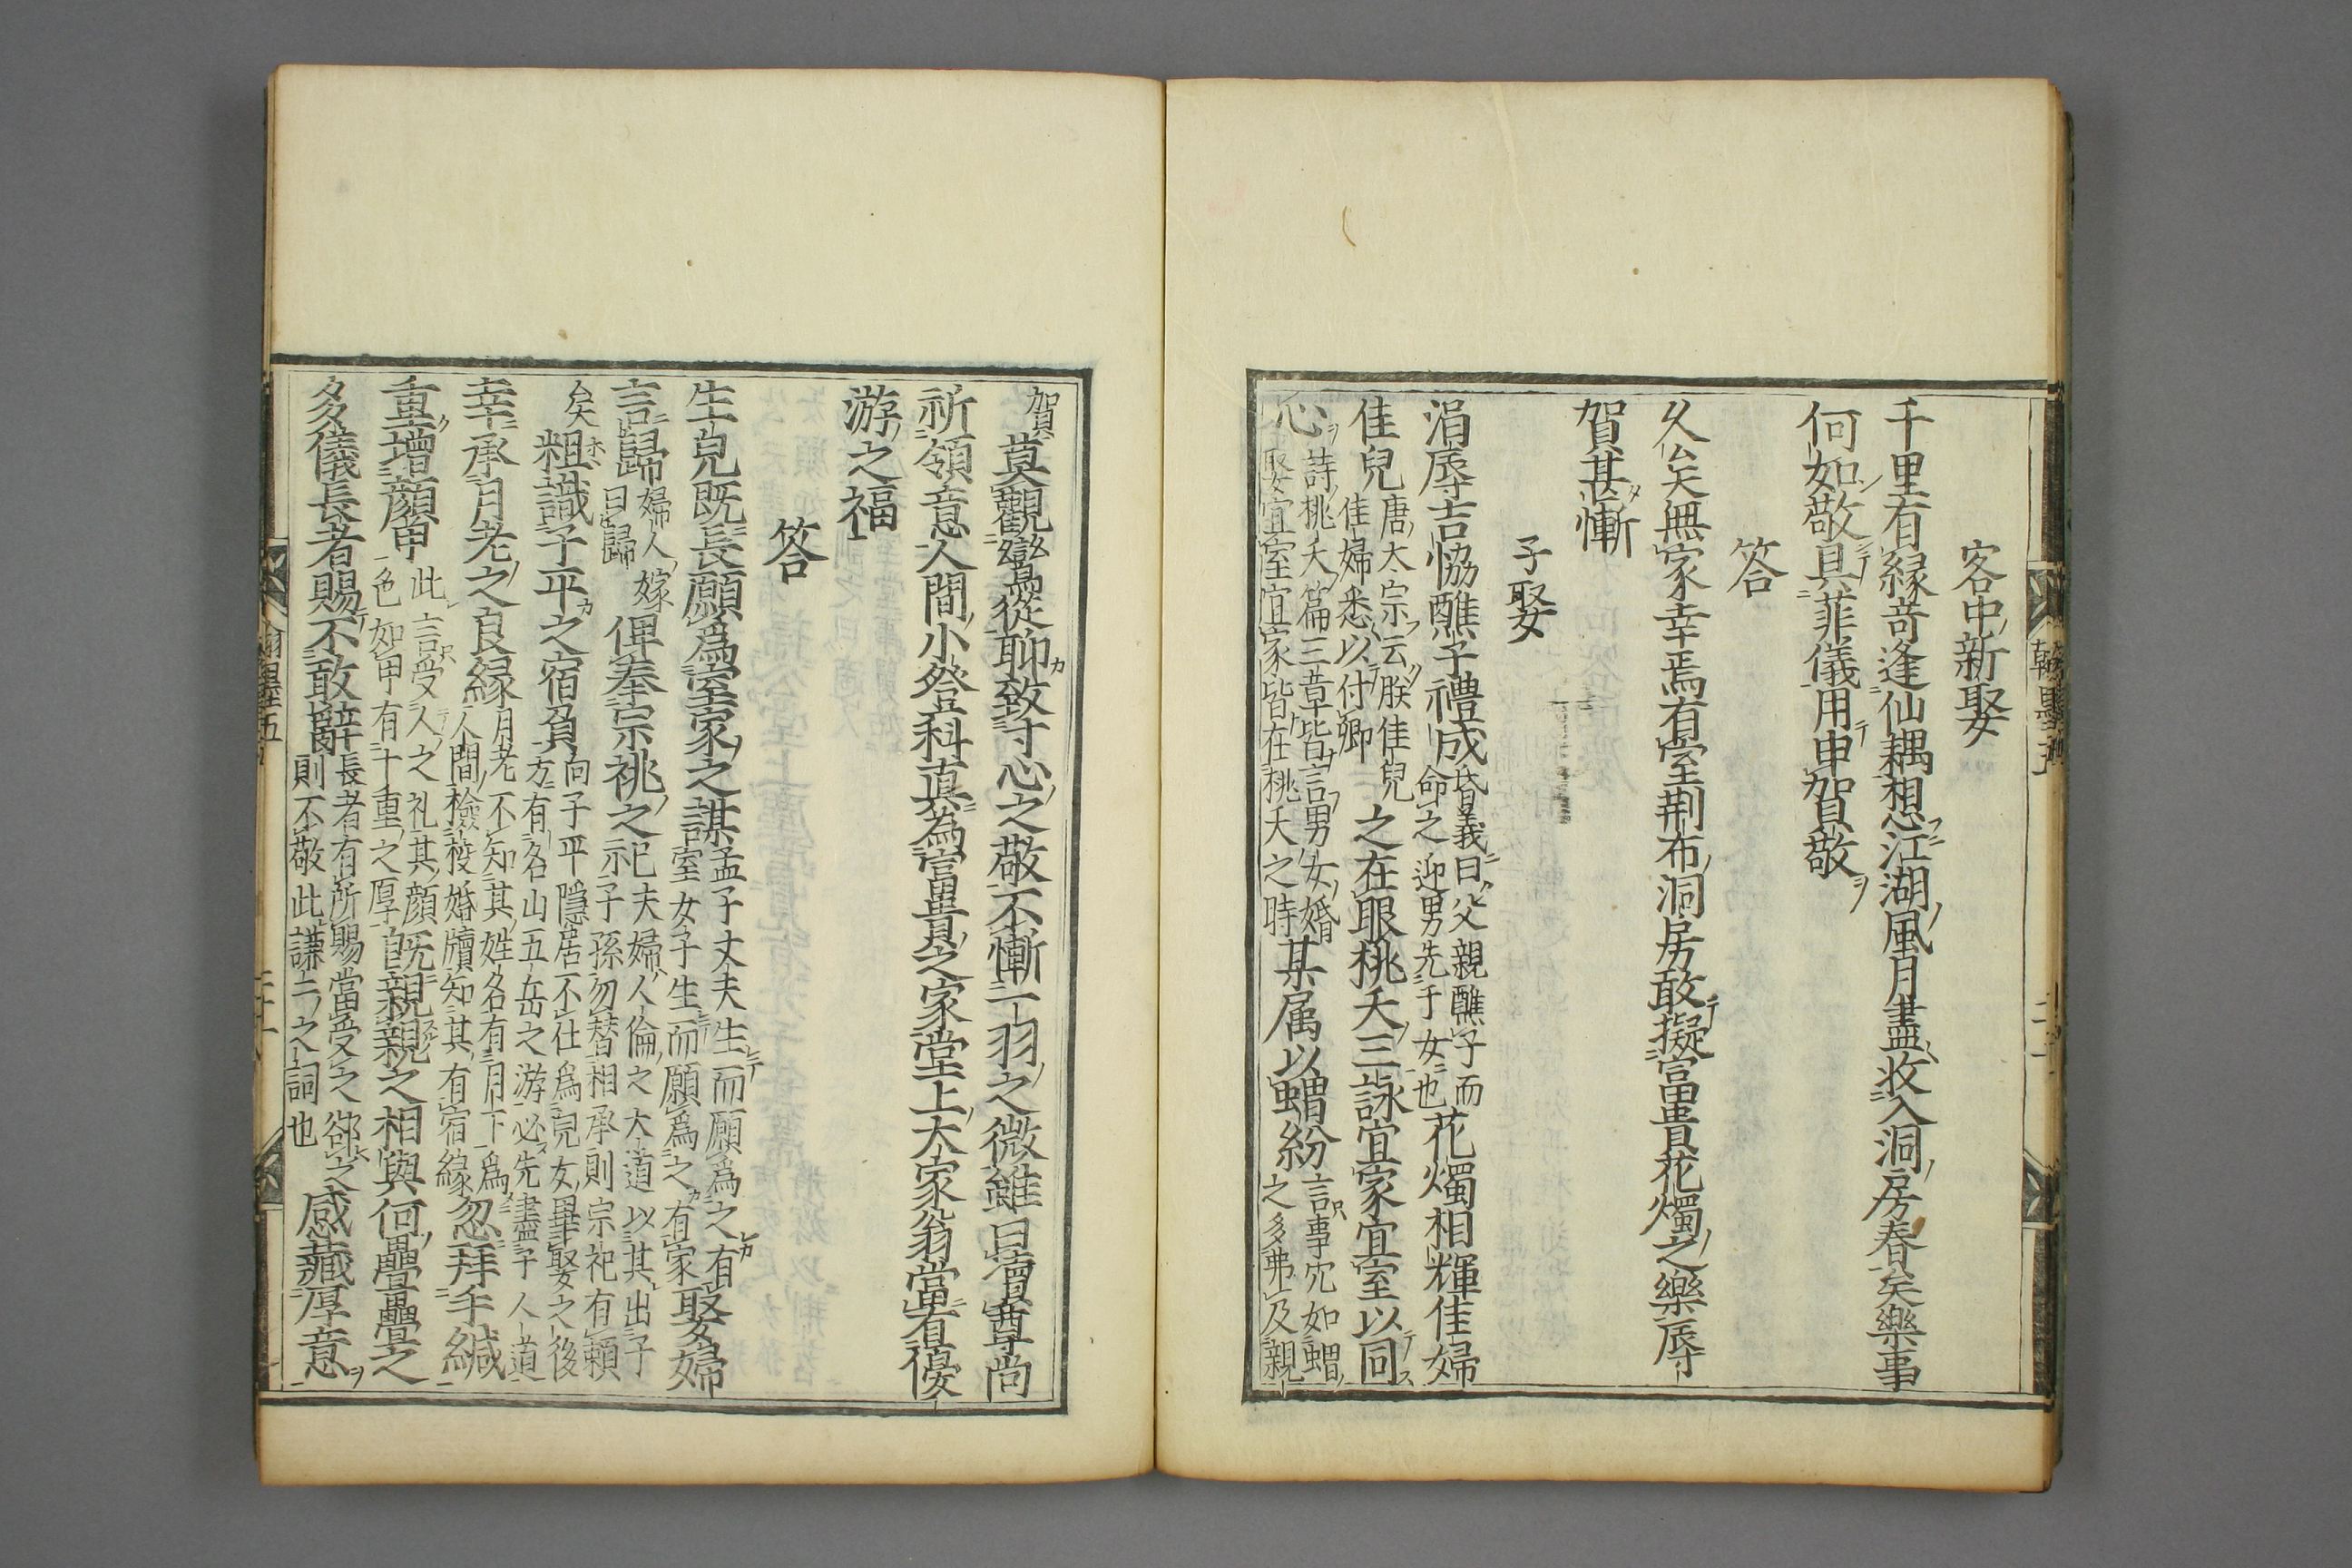 客中新娶
千里有緣奇逢仙耦想江湖風月盡收入洞房春矣樂事
何如敬具菲儀用申賀敬
答
久矣無家幸焉有室荆布洞房敢擬富貴花燭之樂辱
賀甚慚
子娶
涓辱吉恊醮子禮成昏義曰父親醮子而命之迎男先于女也花燭相輝佳婦
佳兒唐太宗云朕佳兒佳婦悉以付卿之在眼桃夭三詠宜家宜室以同
心詩桃夭篇三章皆言男女婚娶宜室宜家皆在桃夭之時某属以蝟紛言事冗如蝟之多弗及親
賀莫觀鸞從聊效寸心之敬不慚一羽之微雖曰瀆尊尚
祈領意人間小登科真為富貴之家堂上大家翁當看優
游之福
答
生兒既長願爲室家之謀孟子丈夫生而願爲之有室女子生而願爲之有家娶婦
言歸婦人嫁曰歸俾奉宗祧之祀夫婦人倫之大道以其出子子孫勿替相承則宗祀有賴
矣粗識子平之宿負向子平隱居不仕爲兒女畢娶之後方有名山五岳之游必先盡子人道
幸承月老之良緣月老不知其姓名有月下爲人間檢校婚牘知其有宿緣忽拜手緘
重增顔甲此言受人之礼其顔色如甲有十重之厚自既親親之相與何疊疊之
多儀長者賜不敢辭長者有所賜當受之郤之則不敬此謙上之詞也感藏厚意
翰墨五